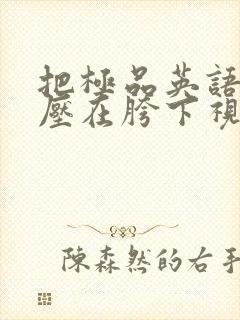 把極品英語
壓在胯下視
陳森然的右手